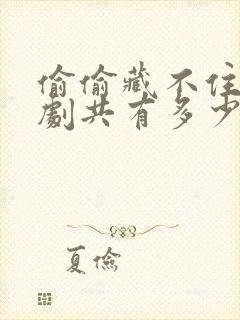 偷偷藏不住
劇共有多少
夏儉